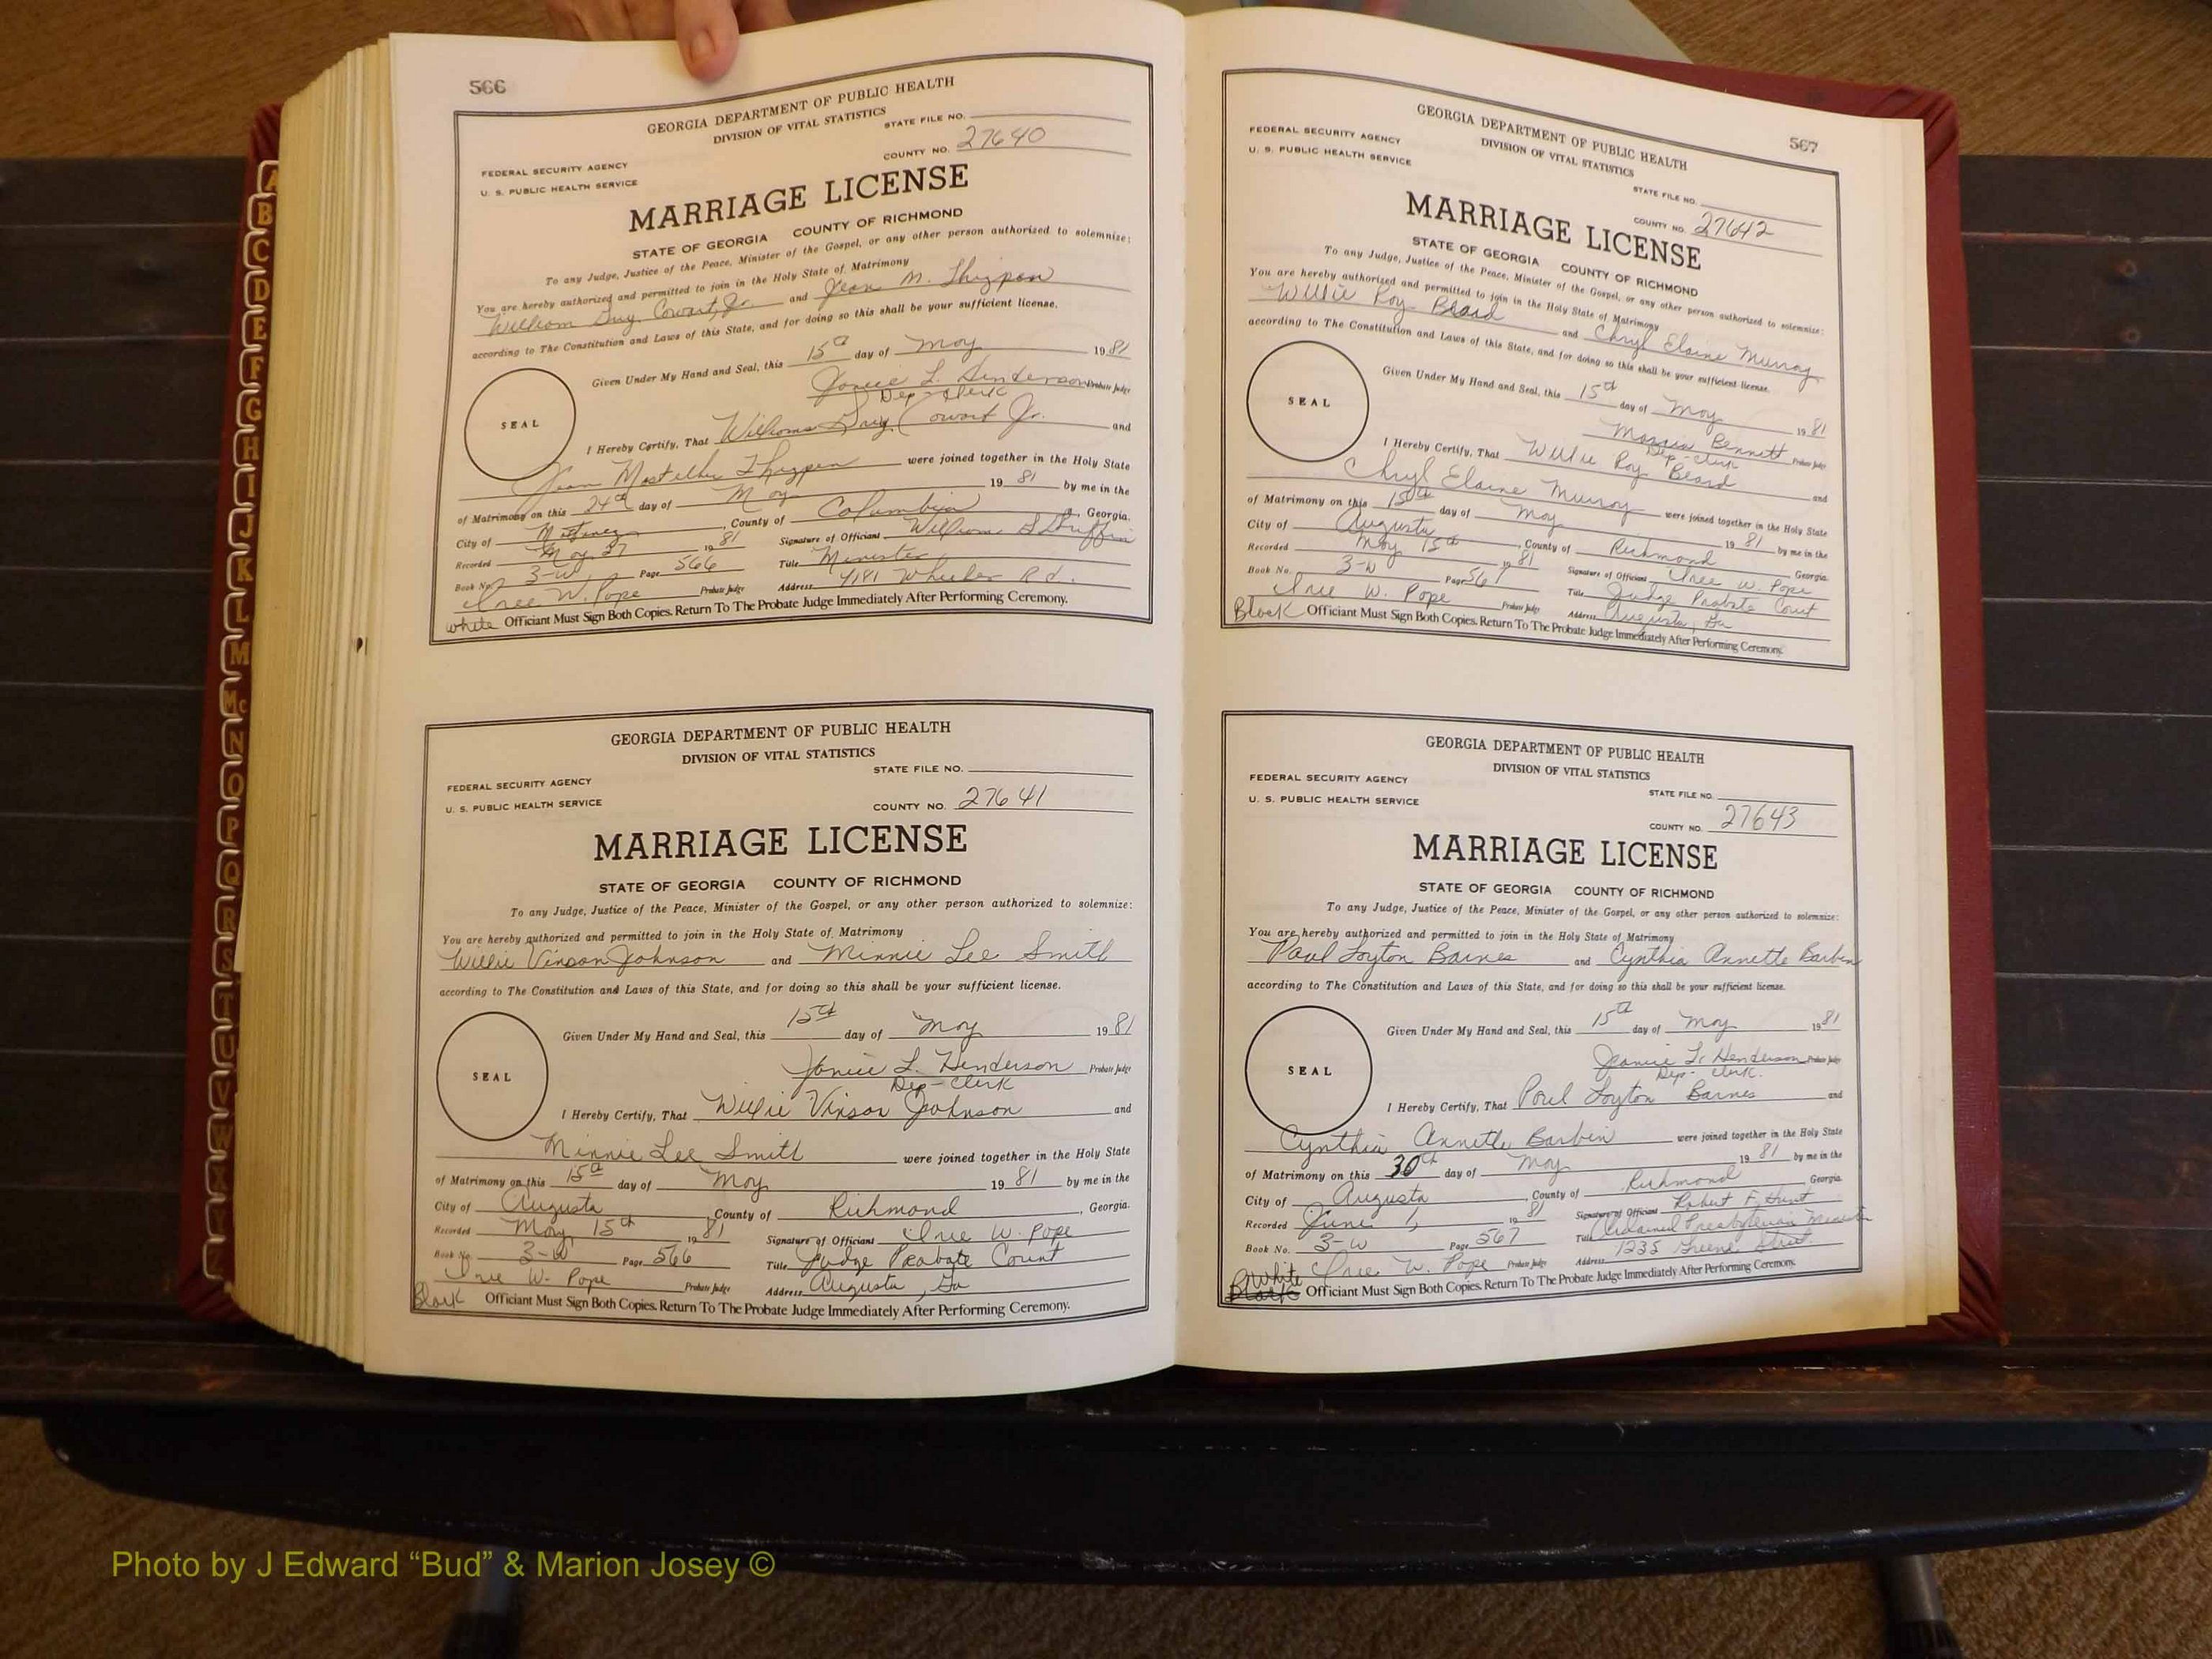 566
GEORGIA DEPARTMENT OF PUBLIC HEALTH
DIVISION OF VITAL STATISTICS
STATE FILE NO.
FEDERAL SECURITY AGENCY
U. S. PUBLIC HEALTH SERVICE
COUNTY NO. 27640
MARRIAGE LICENSE
STATE OF GEORGIA COUNTY OF RICHMOND
To any Judge, Justice of the Peace, Minister of the Gospel, or any other person authorized to solemnize:
You are hereby authorized and permitted to join in the Holy State of Matrimony
William Guy Cowart, Jr. and Jean M. Thigpen
according to The Constitution and Laws of this State, and for doing so this shall be your sufficient license.
Given Under My Hand and Seal, this 15th day of May 1981
Janice L. Henderson Probate Judge
Dep-Clerk
SEAL
I Hereby Certify, That William Guy Cowart Jr. and
Jean Thigpen were joined together in the Holy State
of Matrimony on this 24th day of May 1981 by me in the
City of Martinez, County of Columbia, Georgia.
Recorded May 27 1981 Signature of Officiant William Griffin
Book No. 3-W Page 566 Title Minister
Iree W. Pope Probate Judge Address 4181 Wheeler Rd.
White Officiant Must Sign Both Copies. Return To The Probate Judge Immediately After Performing Ceremony.
GEORGIA DEPARTMENT OF PUBLIC HEALTH
DIVISION OF VITAL STATISTICS
STATE FILE NO.
FEDERAL SECURITY AGENCY
U. S. PUBLIC HEALTH SERVICE
COUNTY NO. 27641
MARRIAGE LICENSE
STATE OF GEORGIA COUNTY OF RICHMOND
To any Judge, Justice of the Peace, Minister of the Gospel, or any other person authorized to solemnize:
You are hereby authorized and permitted to join in the Holy State of Matrimony
Willie Vinson Johnson and Minnie Lee Smith
according to The Constitution and Laws of this State, and for doing so this shall be your sufficient license.
Given Under My Hand and Seal, this 15th day of May 1981
Janice L. Henderson Probate Judge
Dep-Clerk
SEAL
I Hereby Certify, That Willie Vinson Johnson and
Minnie Lee Smith were joined together in the Holy State
of Matrimony on this 15th day of May 1981 by me in the
City of Augusta, County of Richmond, Georgia.
Recorded May 15th 1981 Signature of Officiant Iree W. Pope
Book No. 3-W Page 566 Title Judge Probate Court
Iree W. Pope Probate Judge Address Augusta, Ga
Black Officiant Must Sign Both Copies. Return To The Probate Judge Immediately After Performing Ceremony.
567
GEORGIA DEPARTMENT OF PUBLIC HEALTH
DIVISION OF VITAL STATISTICS
FEDERAL SECURITY AGENCY
U. S. PUBLIC HEALTH SERVICE
STATE FILE NO.
COUNTY NO. 27642
MARRIAGE LICENSE
STATE OF GEORGIA COUNTY OF RICHMOND
To any Judge, Justice of the Peace, Minister of the Gospel, or any other person authorized to solemnize:
You are hereby authorized and permitted to join in the Holy State of Matrimony
Willie Roy Beard and Chryl Elaine Murray
according to The Constitution and Laws of this State, and for doing so this shall be your sufficient license.
Given Under My Hand and Seal, this 15th day of May 1981
Bennett Probate Judge
Dep-Clerk
SEAL
I Hereby Certify, That Willie Roy Beard and
Chryl Elaine Murray were joined together in the Holy State
of Matrimony on this 15th day of May 1981 by me in the
City of Augusta, County of Richmond Georgia.
Recorded May 15th 1981 Signature of Officiant Iree W. Pope
Book No. 3-W Page 567 Title Judge Probate Court
Iree W. Pope Probate Judge Address Augusta, Ga
Black Officiant Must Sign Both Copies. Return To The Probate Judge Immediately After Performing Ceremony.
GEORGIA DEPARTMENT OF PUBLIC HEALTH
DIVISION OF VITAL STATISTICS
FEDERAL SECURITY AGENCY
U. S. PUBLIC HEALTH SERVICE
STATE FILE NO.
COUNTY NO. 27643
MARRIAGE LICENSE
STATE OF GEORGIA COUNTY OF RICHMOND
To any Judge, Justice of the Peace, Minister of the Gospel, or any other person authorized to solemnize:
You are hereby authorized and permitted to join in the Holy State of Matrimony
Paul Loyton Barnes and Cynthia Annette Barbin
according to The Constitution and Laws of this State, and for doing so this shall be your sufficient license.
Given Under My Hand and Seal, this 15th day of May 1981
Janice L. Henderson Probate Judge
Dep-Clerk.
SEAL
I Hereby Certify, That Paul Loyton Barnes and
Cynthia Annette Barbin were joined together in the Holy State
of Matrimony on this 30th day of May 1981 by me in the
City of Augusta, County of Richmond Georgia.
Recorded June 1, 1981 Signature of Officiant Robert F. Hunt
Book No. 3-W Page 567 Title Ordained Presbyterian Minister
Iree W. Pope Probate Judge Address 1235 Greene Street
White Officiant Must Sign Both Copies. Return To The Probate Judge Immediately After Performing Ceremony.
A
B
C
D
E
F
G
H
I
J
K
L
M
Mc
N
O
P
Q
R
S
T
U
V
W
Photo by J Edward “Bud” & Marion Josey ©